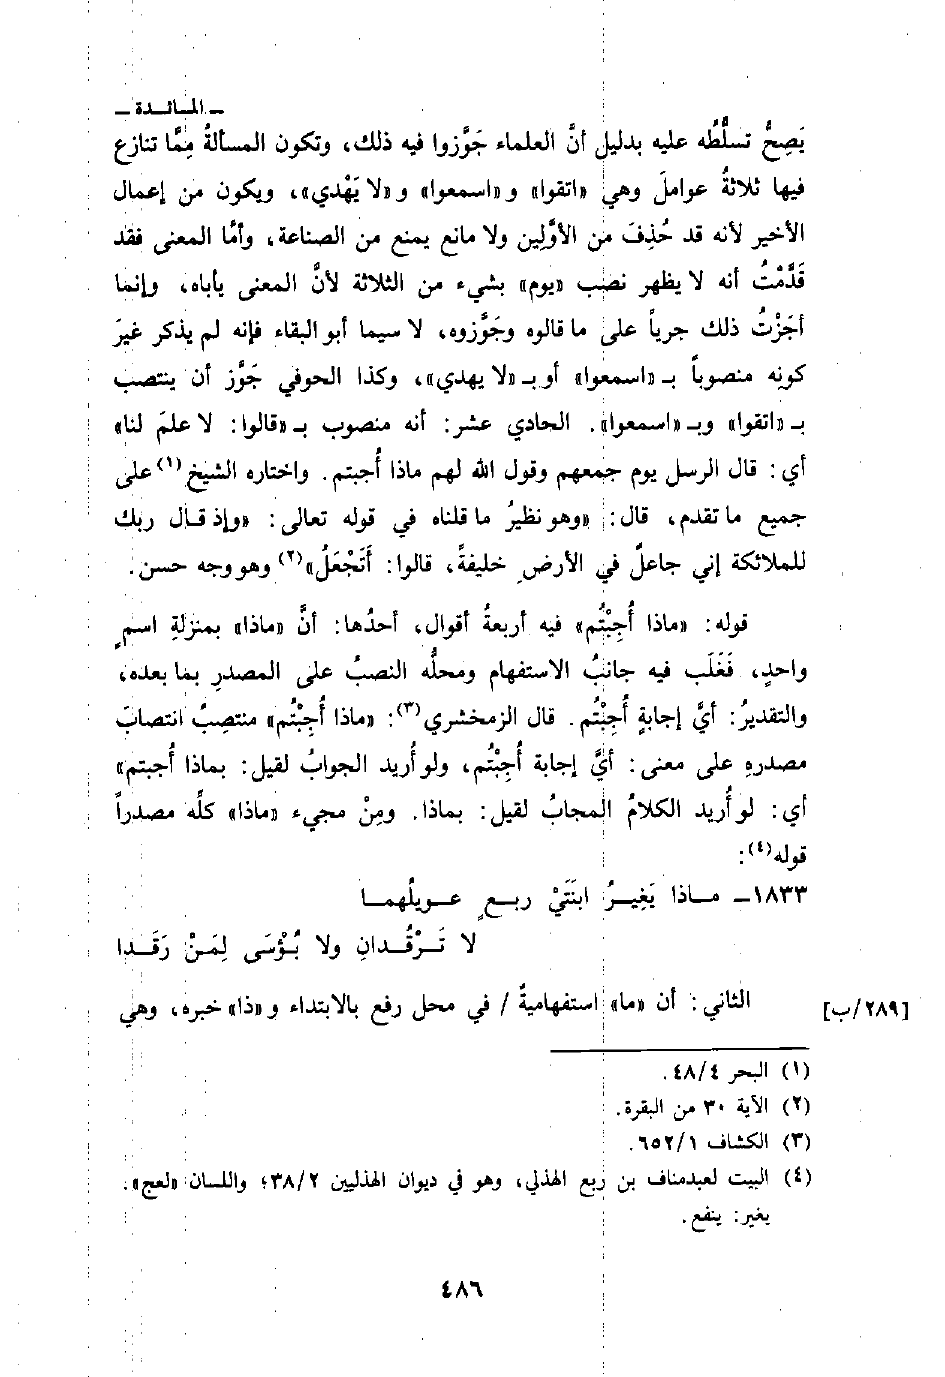 ـ المائدة ـ
يَصِحُّ تسلُّطه عليه بدليل أنَّ العلماء جَوَّزوا فيه ذلك، وتكون المسألةُ مِمَّا تنازع
فيها ثلاثةُ عواملَ وهي «اتقوا» و«اسمعوا» و«لا يَهْدي»، ويكون من إعمال
الأخير لأنه قد حُذِفَ من الأوَّلِين ولا مانع يمنع من الصناعة، وأمَّا المعنى فقد
قَدَّمْتُ أنه لا يظهر نصب «يوم» بشيء من الثلاثة لأنَّ المعنى يأباه، وإنما
أجَزْتُ ذلك جرياً على ما قالوه وجَوَّزوه، لا سيما أبو البقاء فإنه لم يذكر غيرَ
كونِه منصوباً بـ «اسمعوا» أو بـ «لا يهدي»، وكذا الحوفي جَوَّز أن ينتصب
بـ «اتقوا» وبـ «اسمعوا». الحادي عشر: أنه منصوب بـ «قالوا: لا علمَ لنا»
أي: قال الرسل يوم جمعهم وقول الله لهم ماذا أُجبتم. واختاره الشيخ(١) على
جميع ما تقدم، قال: «وهو نظيرُ ما قلناه في قوله تعالى: «وإذ قال ربك
للملائكة إني جاعلٌ في الأرضِ خليفةً، قالوا: أَتَجْعَلُ»(٢) وهو وجه حسن.
قوله: «ماذا أُجِبْتُم» فيه أربعةُ أقوال، أحدُها: أنَّ «ماذا» بمنزلةِ اسمٍ
واحدٍ، فَغَلَب فيه جانبُ الاستفهام ومحلُّه النصبُ على المصدرِ بما بعده،
والتقديرُ: أيَّ إجابةٍ أُجِبْتُم. قال الزمخشري(٣): «ماذا أُجِبْتُم» منتصِبٌ انتصابَ
مصدرهِ على معنى: أيَّ إجابة أُجِبْتُم، ولو أُريد الجوابُ لقيل: بماذا أُجبتم»
أي: لو أُريد الكلامُ المجابُ لقيل: بماذا. ومِنْ مجيء «ماذا» كلِّه مصدراً
قوله(٤):
١٨٣٣ـ مـاذا يَغِيـرُ ابنَتَيْ ربـعٍ عـويلُهمـا
لا تَـرْقُـدانِ ولا بُؤْسَى لِمَنْ رَقَـدا
[٢٨٩/ب] الثاني: أن «ما» استفهاميةٌ / في محل رفع بالابتداء و«ذا» خبره، وهي
(١) البحر ٤٨/٤.
(٢) الآية ٣٠ من البقرة.
(٣) الكشاف ٦٥٢/١.
(٤) البيت لعبدمناف بن ربع الهذلي، وهو في ديوان الهذليين ٣٨/٢؛ واللسان «لعج».
يغير: ينفع.
٤٨٦